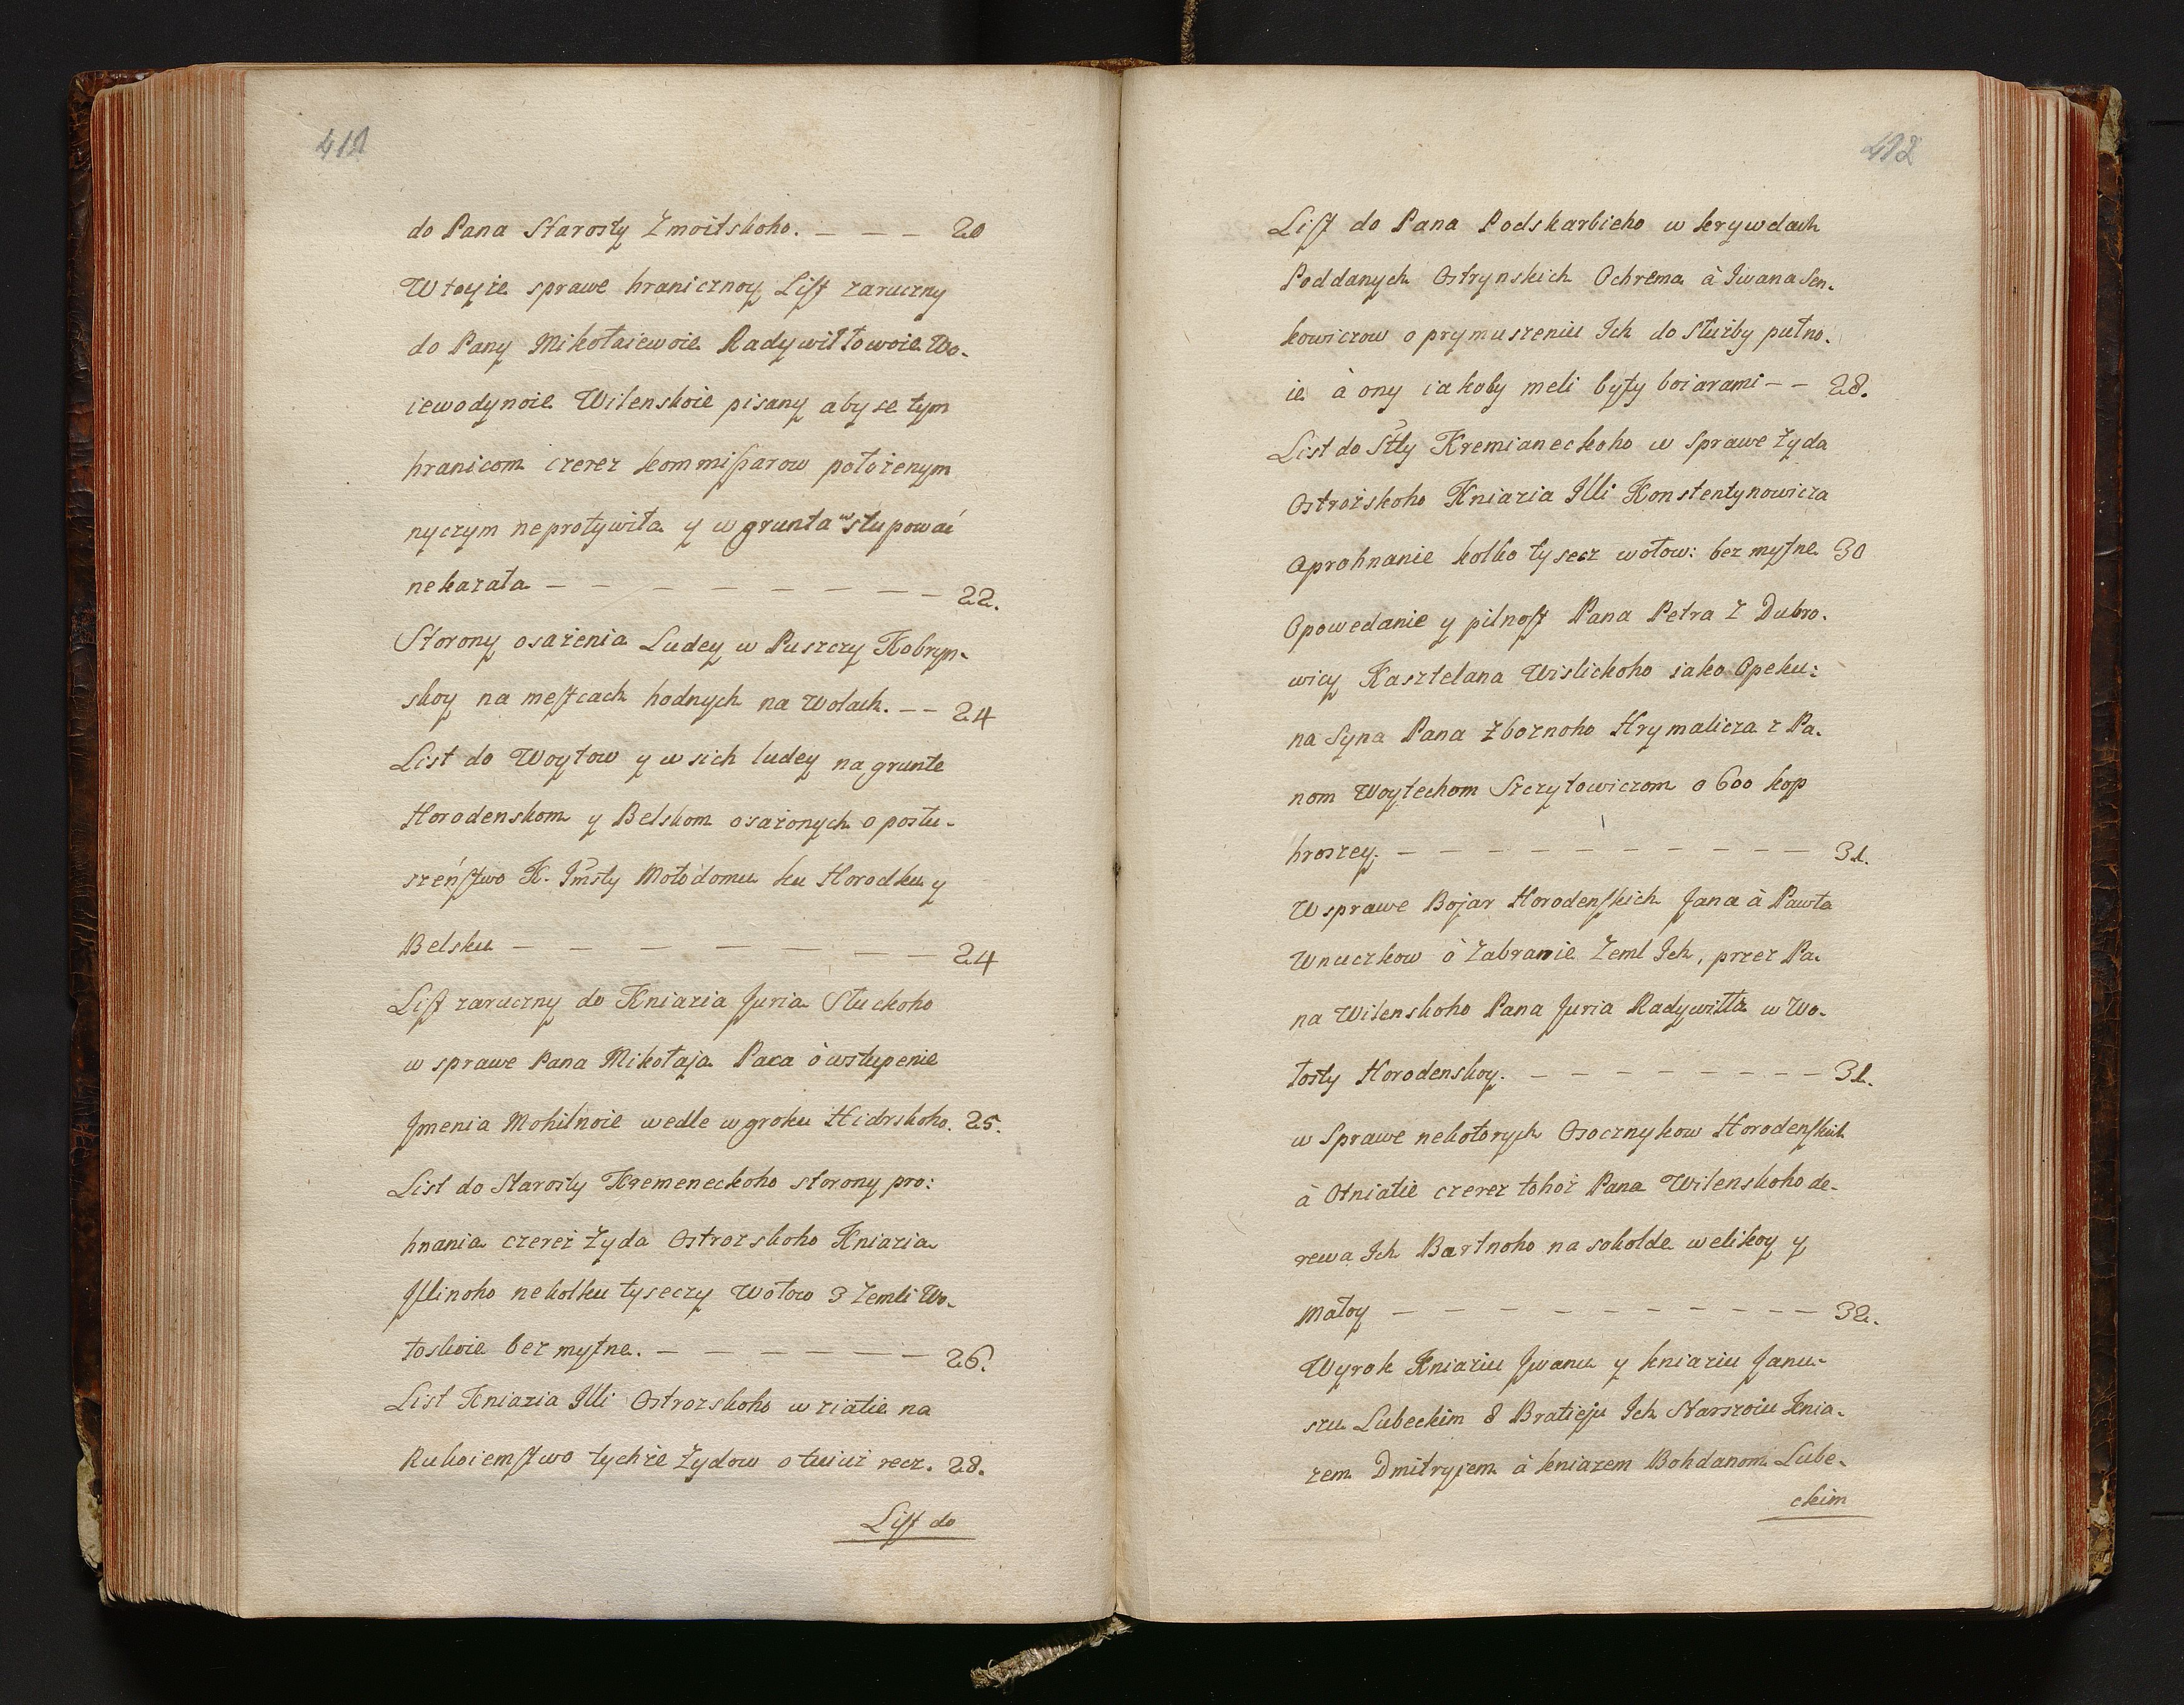 412
do Pana Starosty Żmoitskoho. — — — 20
W toyże sprawe hranicznoy List zaruczny
do Pany Mikołaiewoie Radywiłłowoie Wo-
iewodynoie Wilenskoie pisany aby se tym
hranicom czerez kommissarow położenym
nyczym neprotywiła y w grunta wstupować
nekazała — — — — — — — — 22.
Storony osażenia Ludey w Puszczy Kobryn-
skoy na mestcach hodnych na Wolach. — — 24
List do Woytow y wsich ludey na grunte
Horodenskom y Belskom osażonych o posłu-
szeństwo K. Jmsty Mołodomu ku Horodku y
Belsku — — — — — — — 24
List zaruczny do Kniazia Juria Słuckoho
w sprawe Pana Mikołaja Paca o wstupenie
Jmenia Mohilnoie wedle wyroku Hidrskoho. 25.
List do Starosty Kremeneckoho storony pro:
hnania czerez Żyda Ostrozskoho Kniazia
Jllinoho nekolku tyseczy Wołow 3 Zemli Wo-
łoskoie bez mytne. — — — — — — 26.
List Kniazia Jlli Ostrozskoho wziatie na
Rukoiemstwo tychże Żydow o tuiuż recz. 28.
List do
412
List do Pana Podskarbieho w krywdach
Poddanych Ostrynskich Ochrema à Jwana Sen-
kowiczow o prymuszeniu Jch do Służby putno-
ie à ony iakoby meli byty boiarami — — 28.
List do Stty Kremianeckoho w Sprawe Żyda
Ostrożskoho Kniazia Jlli Konstentynowicza
Oprohnanie kolko tysecz wołow: bez mytne 30
Opowedanie y pilnost Pana Petra Z Dubro-
wicy Kasztelana Wislickoho iako Opeku:
na Syna Pana Zboznoho Hrymalicza z Pa-
nom Woytechom Szczytowiczom o 600 kop
hroszey. — — — — — — — — — — 31.
W sprawe Bojar Horodenskich Jana à Pawła
Wnuczkow ò Zabranie Zeml Jch, przez Pa-
na Wilenskoho Pana Juria Radywiłła w Wo-
łosty Horodenskoy. — — — — — — — — 31.
w Sprawe nekotorych Osocznykow Horodenskich
à Otniatie czerez tohoż Pana Wilenskoho de-
rewa Jch Bartnoho na sokolde welikoy y
małoy — — — — — — — — — — 32.
Wyrok Kniaziu Jwanu y kniaziu Janu-
szu Lubeckim 8 Bratieju Jch Starszoiu Knia-
zem Dmitryjem à kniazem Bohdanom Lube-
ckim